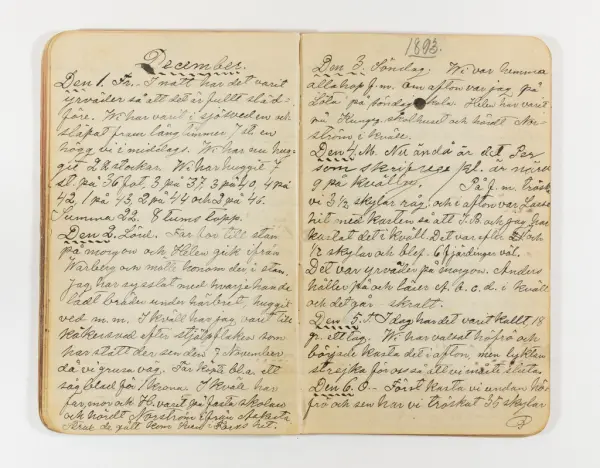 December.
Den 1. Fr. I natt har det varit
yrväder så att det är fullt släd-
före. Wi har varit i sjöskogen och
släpat fram lång timmer 7 st. en
högg vi i middags. Wi har nu hug-
git 22 stockar. Wi har huggit 7
st. på 36 fot, 3 på 37, 3 på 40, 4 på
42, 1 på 43, 2 på 44 och 2 på 46.
Summa 22. 8 tums topp.
Den 2. Lörd. Far for till stan
på morgon och Helen gik ifrån
Warberg och mötte honom der i stan.
Jag har sysslat med hvarjehanda
ladt bräder under härbret, huggit
ved m.m. I kväll har jag varit till
efter som
har statt der sen den 7 November
då vi grusa väg. Far köpte bla. ett
sågblad för 1 krona. I kväll har
far, mor och H. varit på fasta skolan
och hördt Norström ifrån
1893.
Den 3. Söndag. Wi var hemma
allahop f.m. Om afton var jag på
Lota på söndagskola. Helen har varit
nu skolhuset och hördt Nor-
ström i kväll.
Den 4. M. Nu ändå är det Per
som skrifver kl. är nära
9 på kvällen. På f.m. tröska
vi 3½ skylar rag, och i afton var Lasse
hit med kasten så att J.B. och jag har
kastat det i kväll. Det var efter och
½ skylar och blef 6 fjärdingar väl.
Det var yrväder på morgon. Anders
håller på och läser a. b. c. d. i kväll
och det går skralt.
Den 5. T. I dag har det varit kallt, 18
gr. ett tag. Wi har valsat höfrö och
började kasta det i afton, men lyktan
strejka för oss så att vi måste sluta.
Den 6. O. Först kasta vi undan hö-
frö och sen har vi tröskat 35 skylar